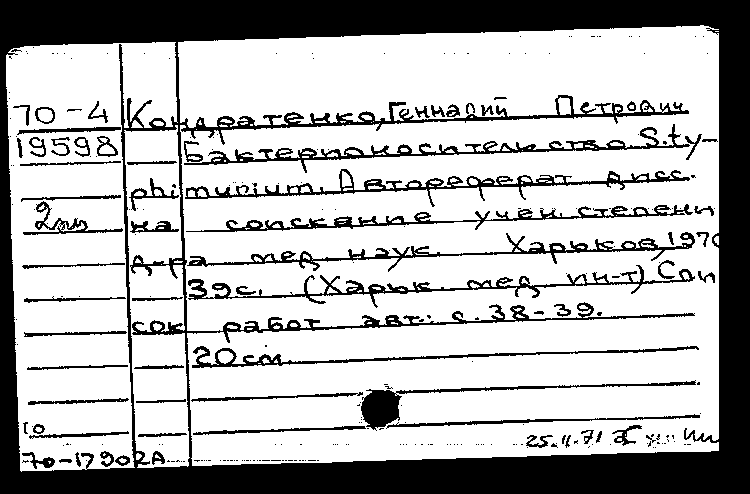 70-4 Кондратенко, Геннадий Петрович
19598 Бактерионосительство S. ty-
phimurium. Автореферат дисс.
2 на соискание учен. степени
д-ра мед. наук. Харьков, 1970
39 с. (Харьк. мед. ин-т) Спи
сок работ авт: с. 38-39.
20 см.
10
25.II.71
70-17902А